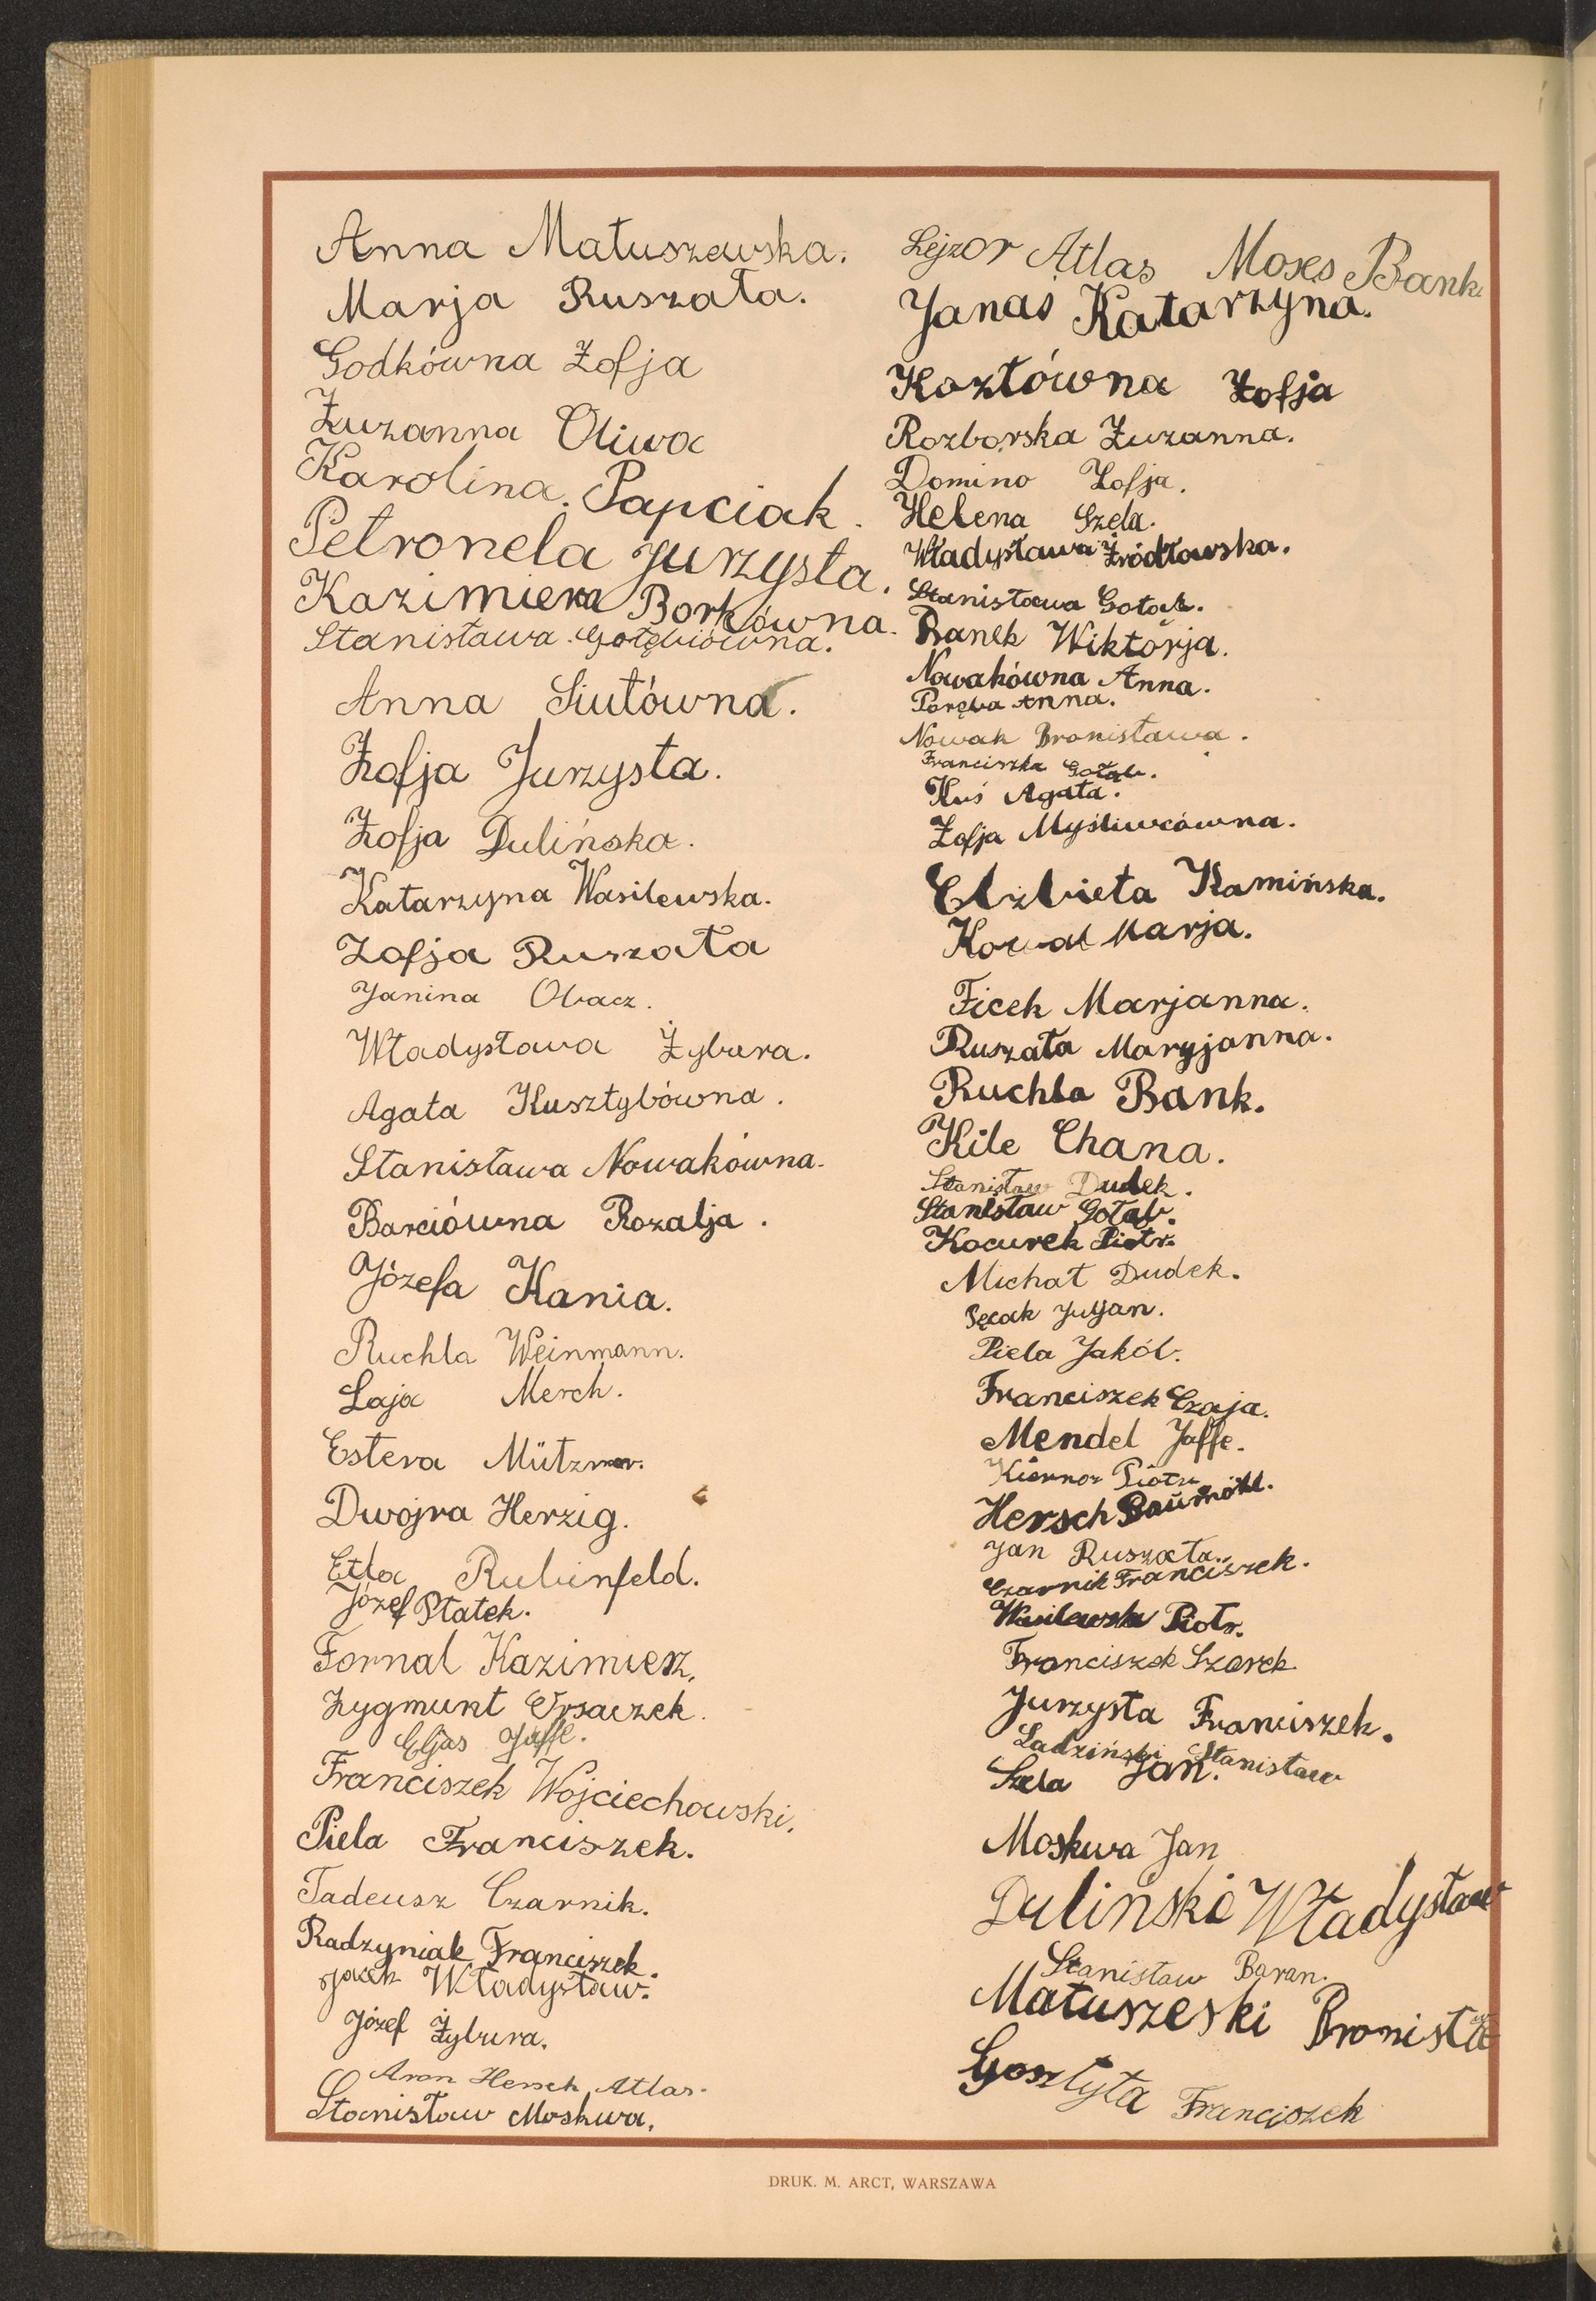 Anna Matuszewska.
Marja Ruszała.
Godkówna Zofja
Zuzanna Oliwa
Karolina Papciak.
Petronela Jurzysta.
Kazimiera Borkówna.
Stanisława Gołębiówna.
Anna Siutówna.
Zofja Jurzysta.
Zofja Dulińska.
Katarzyna Wasilewska.
Zofja Ruszała
Janina Obacz.
Władysława Żybura.
Agata Kusztybówna.
Stanisława Nowakówna.
Barciówna Rozalja.
Józefa Kania.
Ruchla Weinmann.
Laja Merch.
Estera Mützner.
Dwojra Herzig.
Etla Rubinfeld.
Józef Płatek.
Fornal Kazimierz.
Zygmunt Orsaczek.
Eljas Jaffe.
Franciszek Wojciechowski.
Piela Franciszek.
Tadeusz Czarnik.
Radzyniak Franciszek.
Jacek Władysław.
Józef Żybura.
Aron Hersch Atlas.
Stanisław Moskwa.
Lejzor Atlas Moses Bank
Janas Katarzyna.
Kozłówna Zofja
Rozborska Zuzanna.
Domino Zofja.
Helena Szela.
Władysława Źródłowska.
Stanisława Gołąb.
Banek Wiktorja.
Nowakówna Anna.
Poręba Anna.
Nowak Bronisława.
Franciszka Gołąb.
Kuś Agata.
Zofja Myśliwcówna.
Elżbieta Kamińska.
Kowal Marja.
Ficek Marjanna.
Ruszała Maryjanna.
Ruchla Bank.
Kile Chana.
Stanisław Dudek.
Stanisław Gołąb.
Kocurek Piotr.
Michał Dudek.
Pęcak Juljan.
Piela Jakób.
Franciszek Czaja.
Mendel Jaffe.
Piotr
Hersch Baumöhl.
Jan Ruszała.
Czarnik Franciszek.
Piotr.
Franciszek Szarek.
Jurzysta Franciszek.
Ladziński Stanisław
Szela Jan.
Moskwa Jan
Duliński Władysław
Stanisław Baran.
Matuszeski
Goszlyta Franciszek
DRUK. M. ARCT, WARSZAWA